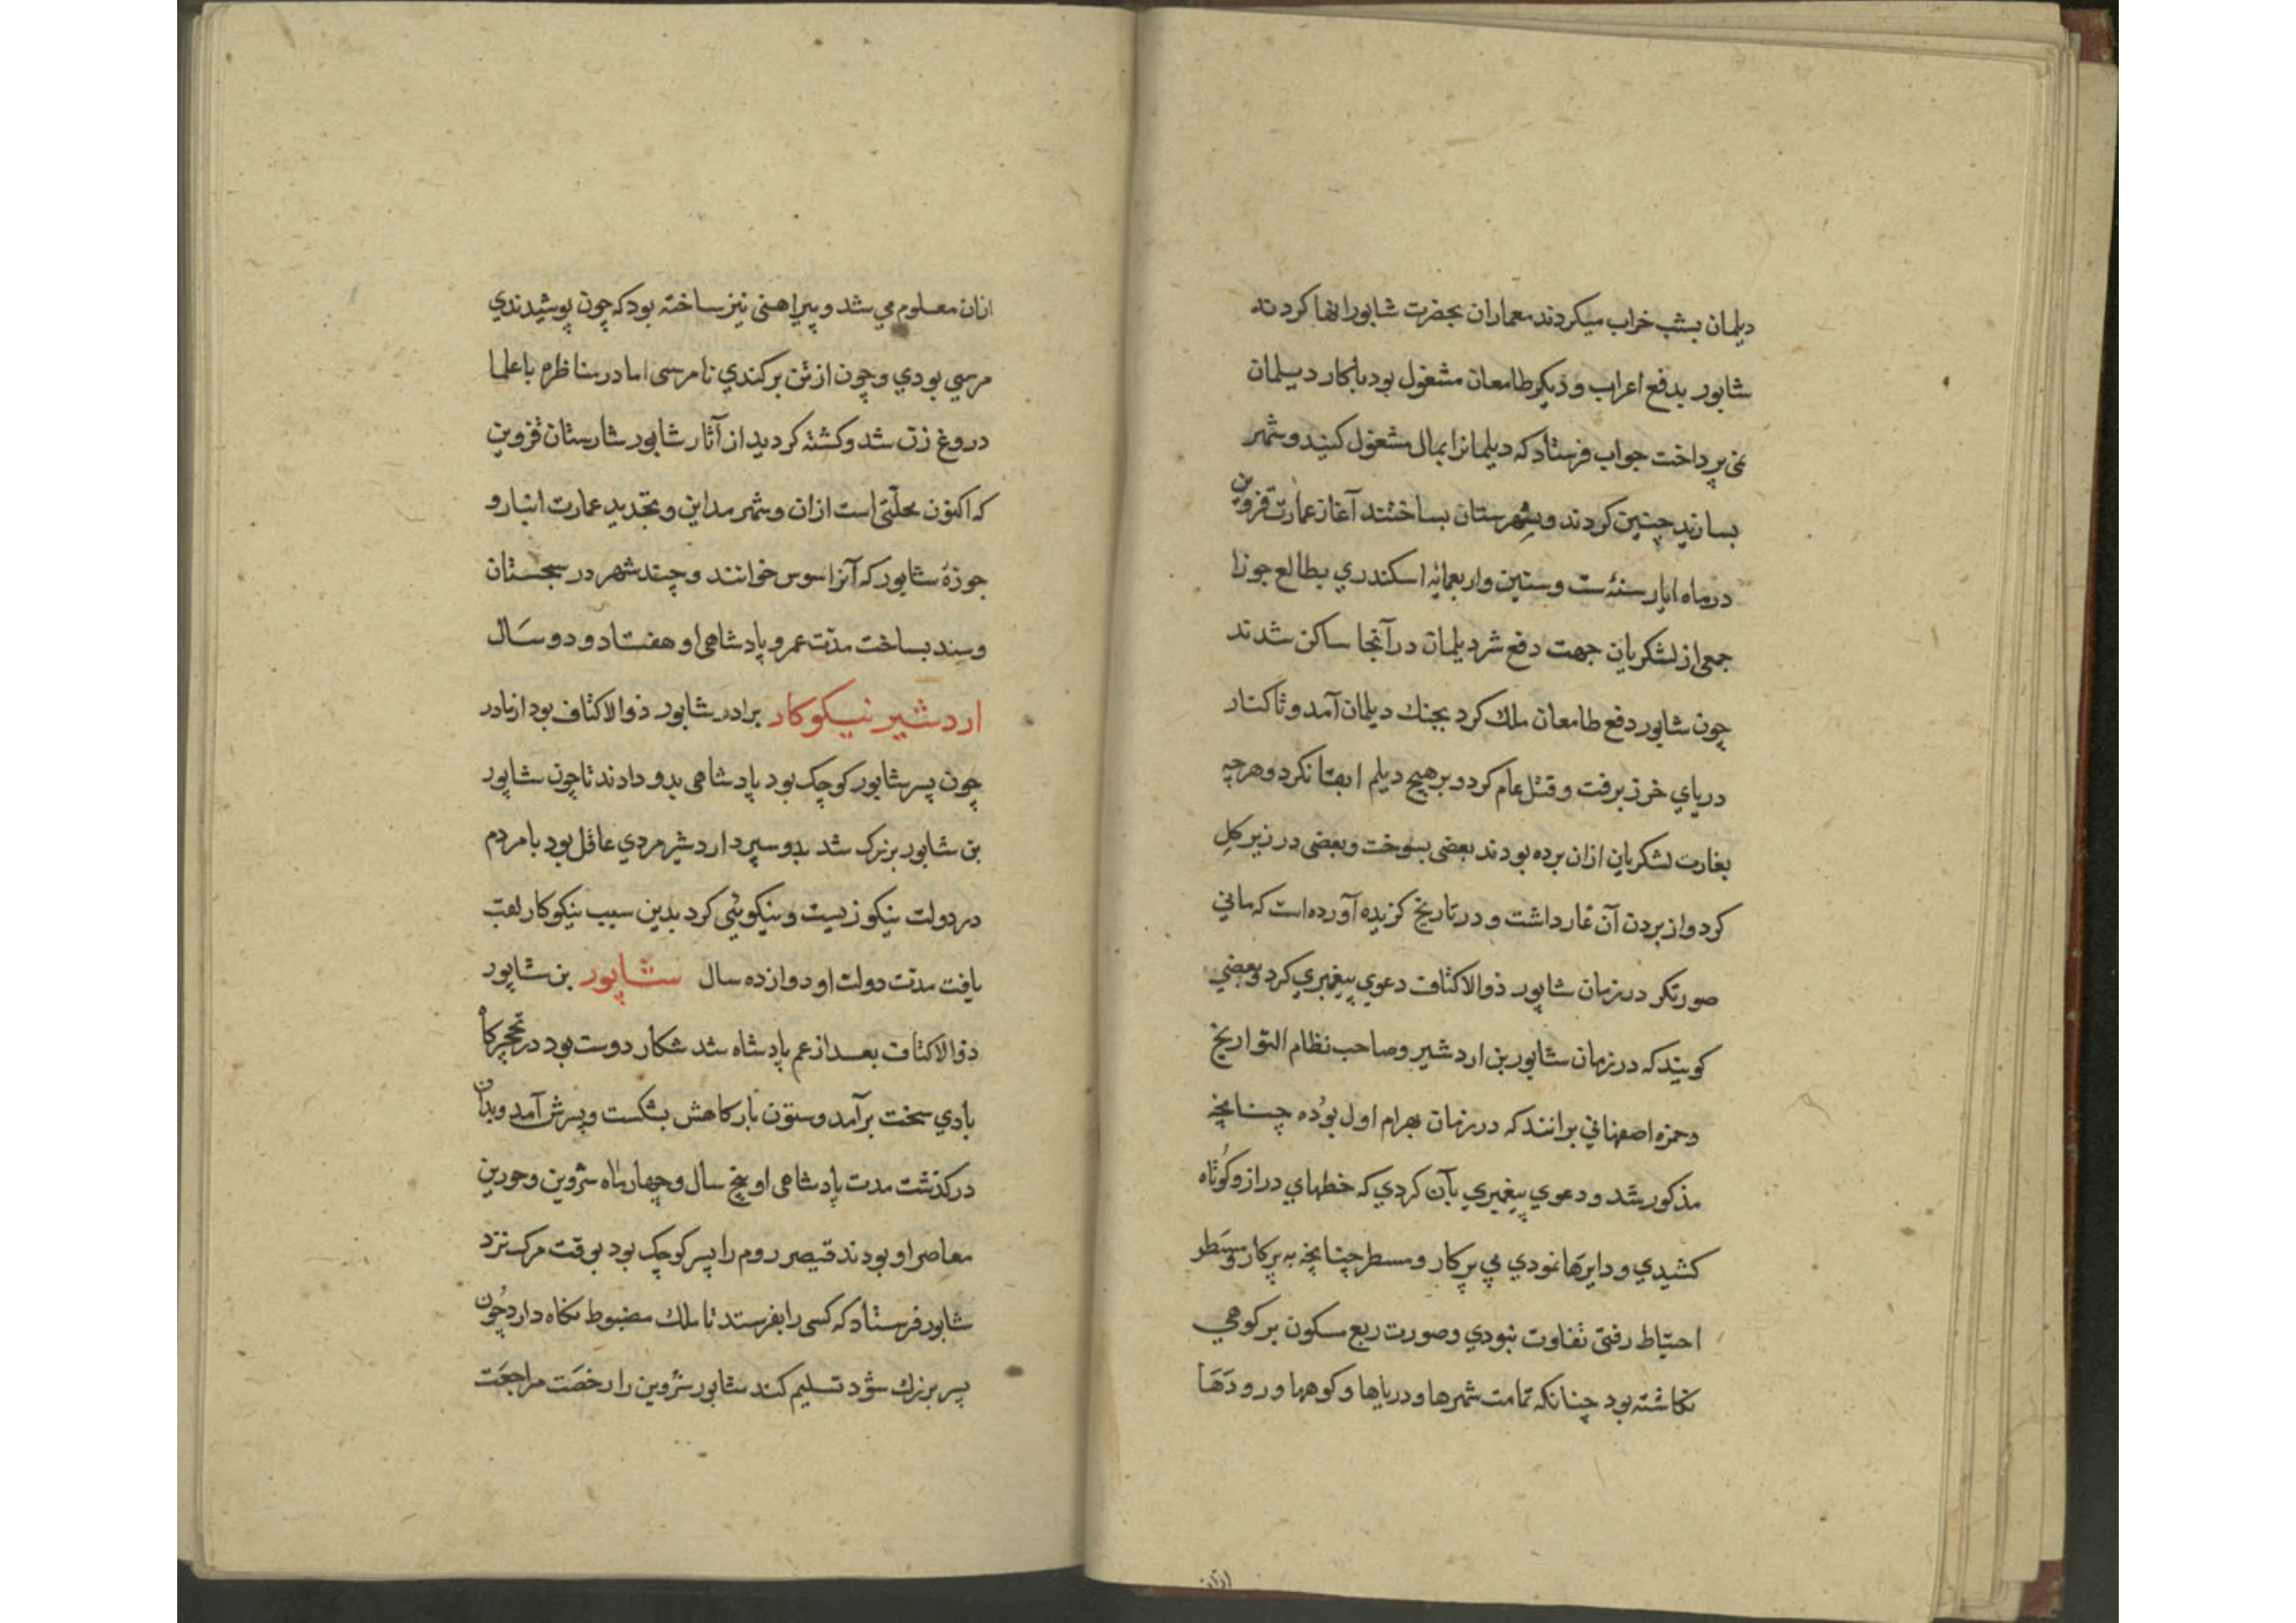 دیلمان بشب خراب میکردند معماران بحضرت شابور انها کردند
شابور بدفع اعراب و دیکر طامعان مشغول بود باکار دیلمان
نمی پرداخت جواب فرستاد که دیلمانرا بمال مشغول کنید و شهر
بسازید چنین کردند و شهرستان بساختند آغاز عمارت قزوین
در ماه ایار سنه ست و ستین و اربعمایه اسکندری بطالع جوزا
جمعی از لشکریان جهت دفع شر دیلمان در آنجا ساکن شدند
چون شابور دفع طامعان ملک کرد بجنک دیلمان آمد و تا کنار
دریای خرز برفت و قتل عام کرد و بر هیچ دیلم ابقا نکرد و هرچه
بغارت لشکریان ازان برده بودند بعضی بسوخت و بعضی در زیر کل
کرد و از بردن آن عار داشت و در تاریخ کزیده آورده است که مانی
صورتکر در زمان شاپور ذوالاکتاف دعوی پیغمبری کرد و بعضی
کویند که در زمان شاپور بن اردشیر و صاحب نظام التواریخ
و حمزه اصفهانی برانند که در زمان بهرام اول بوده چنانچه
مذکور شد و دعوی پیغمبری بآن کردی که خطهای دراز و کوتاه
کشیدی و دایرها نمودی بی پرکار و مسطر چنانچه به پرکار و مسطر
احتیاط رفتی تفاوت نبودی و صورت ربع سکون بر کوهی
نکاشته بود چنانکه تمامت شهرها و دریاها و کوهها و رودها
ازان
ازان معلوم می شد و پیراهنی نیز ساخته بود که چون پوشیدندی
مرئی بودی و چون از تن برکندی نامرئی اما در مناظره با علما
دروغ زن شد و کشته کردید از آثار شاپور شارستان قزوین
که اکنون محلتی است ازان و شهر مداین و تجدید عمارت انبار و
جوزهٔ شاپور که آنرا سوس خوانند و چند شهر در سجستان
و سند بساخت مدت عمر و پادشاهی او هفتاد و دو سال
اردشیر نیکوکار برادر شاپور ذوالاکتاف بود از مادر
چون پسر شاپور کوچک بود پادشاهی بدو دادند تا چون شاپور
بن شاپور بزرک شد بدو سپرد اردشیر مردی عاقل بود با مردم
در دولت نیکو زیست و نیکوئی کرد بدین سبب نیکوکار لقب
یافت مدت دولت او دوازده سال شاپور بن شاپور
ذوالاکتاف بعد از عم پادشاه شد شکار دوست بود در نخچیرکاه
بادی سخت برآمد و ستون بارکاهش بشکست و بسرش آمد و بدان
درکذشت مدت پادشاهی او پنج سال و چهار ماه شروین و حورین
معاصر او بودند قیصر روم را پسر کوچک بود بوقت مرک نزد
شابور فرستاد که کسی را بفرستد تا ملک مضبوط نکاه دارد چون
پسر بزرك شود تسلیم کند شاپور شروین را رخصت مراجعت